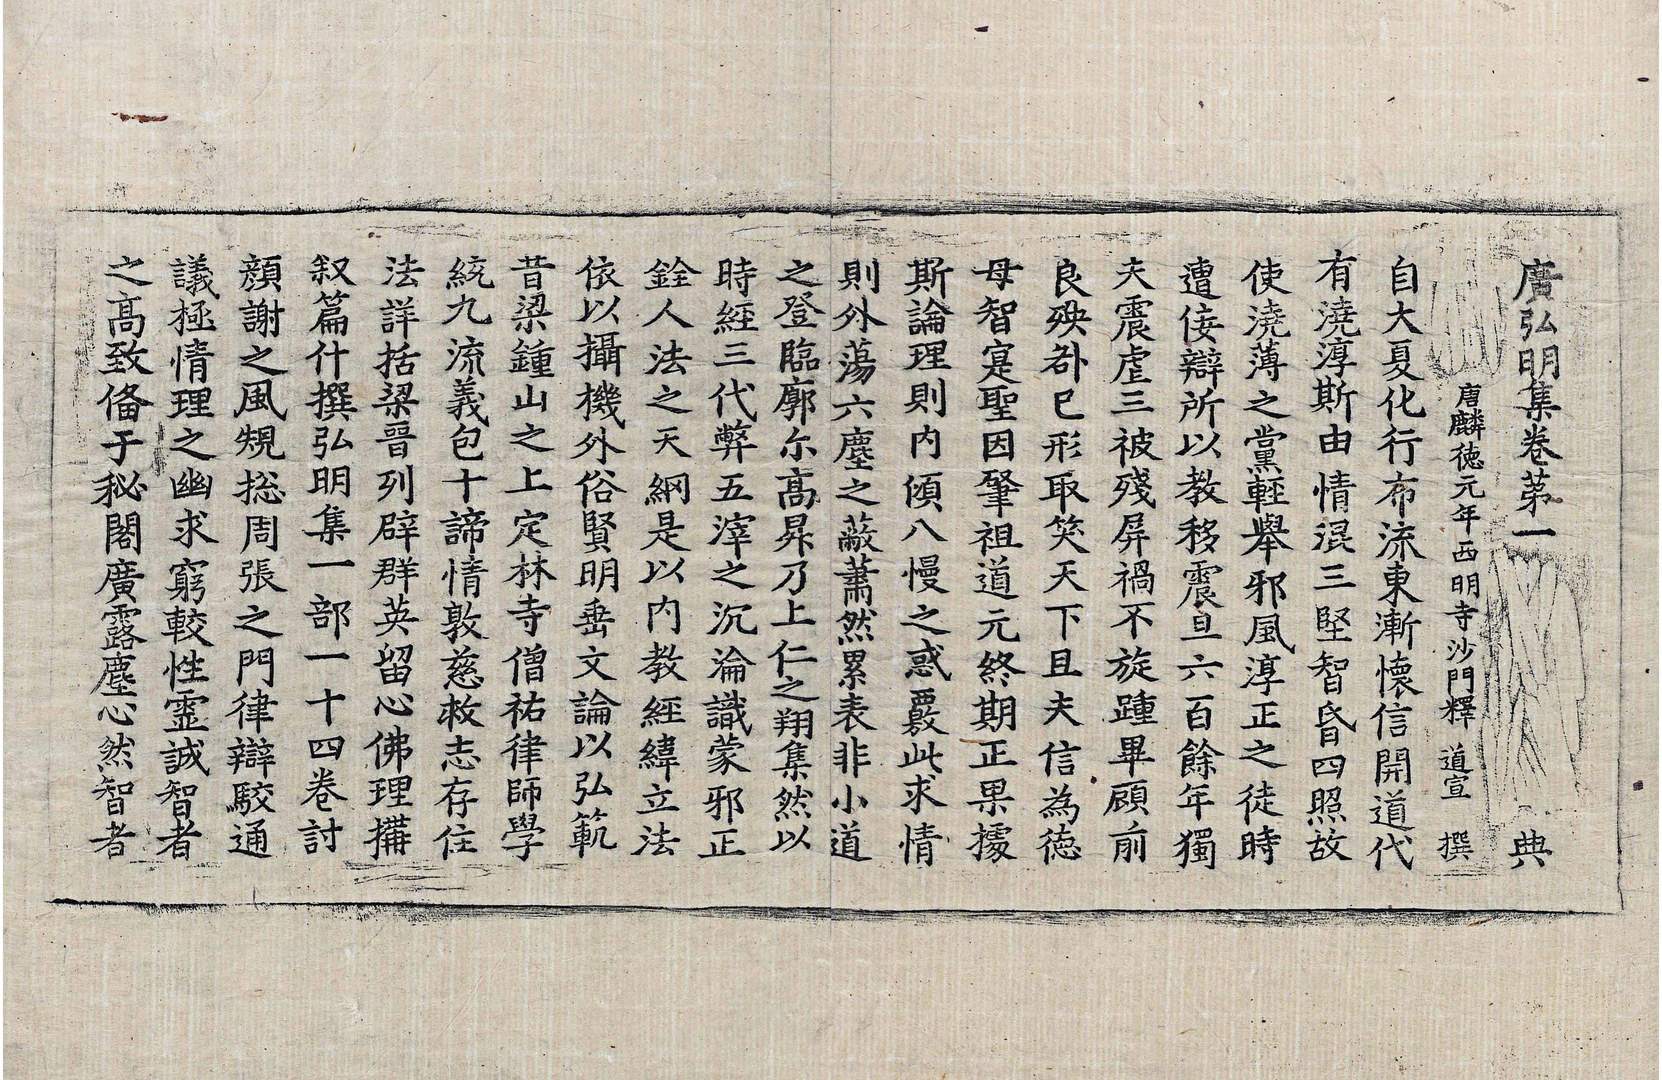 廣弘明集卷第一 典
唐麟德元年西明寺沙門釋 道宣 撰
自大夏化行布流東漸懷信開道代
有澆淳斯由情混三堅智昏四照故
使澆薄之黨輕舉邪風淳正之徒時
遭佞辯所以教移震旦六百餘年獨
夫震虐三被殘屏禍不旋踵畢顧前
良殃咎已形取笑天下且夫信為德
母智寔聖因肇祖道元終期正果據
斯論理則內傾八慢之惑覈此求情
則外蕩六塵之蔽蕭然累表非小道
之登臨廓尒高昇乃上仁之翔集然以
時經三代弊五滓之沉淪識蒙邪正
銓人法之天網是以內教經緯立法
依以攝機外俗賢明垂文論以弘範
昔梁鍾山之上定林寺僧祐律師學
統九流義包十諦情敦慈救志存住
法詳括梁晉列辟群英留心佛理搆
叙篇什撰弘明集一部一十四卷討
顏謝之風規捴周張之門律辯駮通
議極情理之幽求窮較性靈誠智者
之高致俻于秘閣廣露塵心然智者